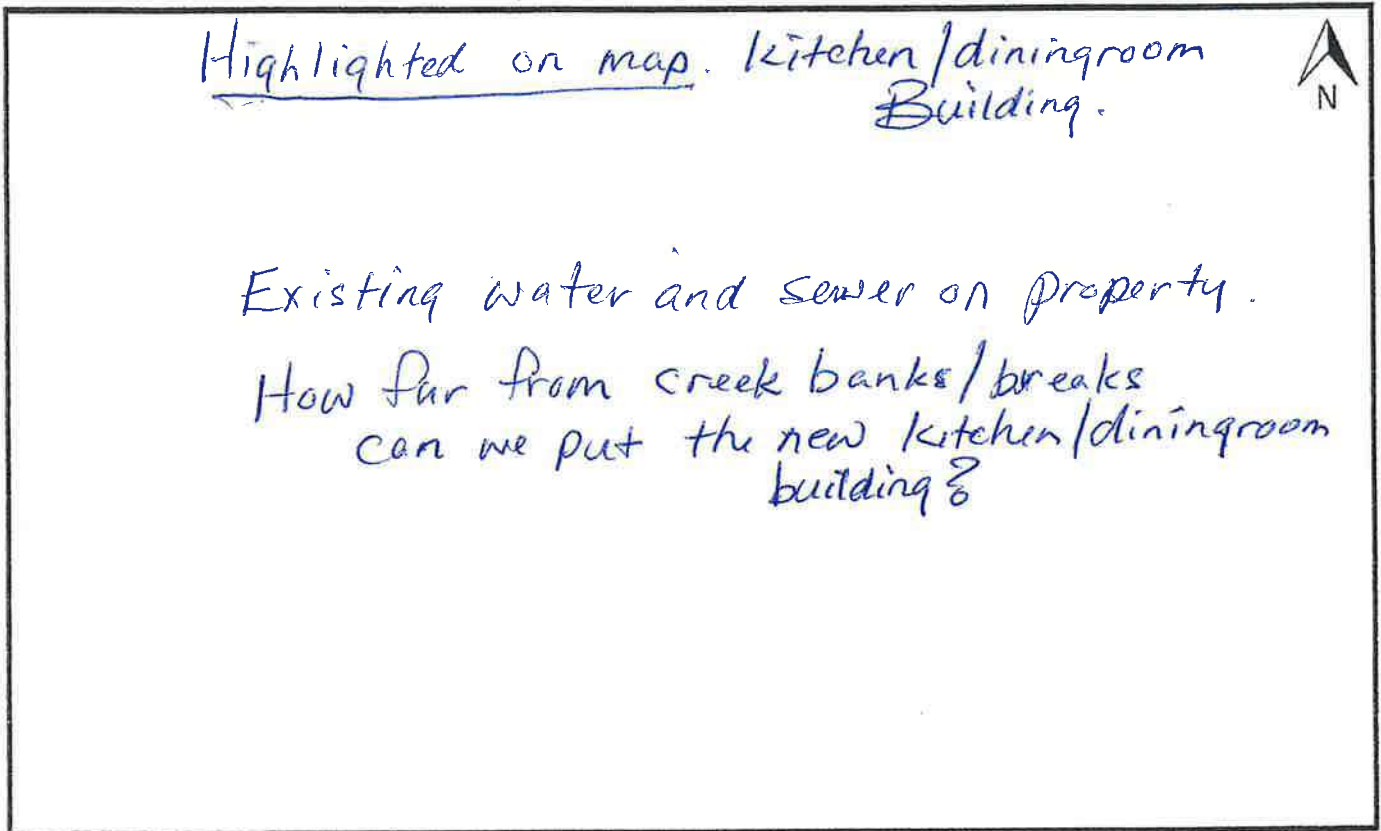 Highlighted on map. Kitchen/diningroom
Building.
N
Existing water and sewer on property.
How far from creek banks/breaks
can we put the new kitchen/diningroom
building?